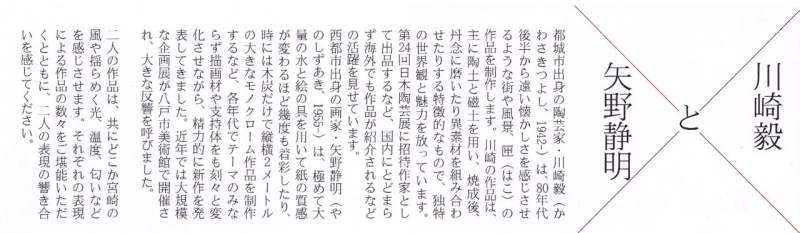 川崎毅
と
矢野静明
都城市出身の陶芸家・川崎毅（か
わさきつよし、1942-）は、80年代
後半から遠い懐かしさを感じさせ
るような街や風景、匣（はこ）の
作品を制作します。川崎の作品は、
主に陶土と磁土を用い、焼成後、
丹念に磨いたり異素材を組み合わ
せたりする特徴的なもので、独特
の世界観と魅力を放っています。
第24回日本陶芸展に招待作家とし
て出品するなど、国内にとどまら
ず海外でも作品が紹介されるなど
の活躍を見せています。
西都市出身の画家・矢野静明（や
のしずあき、1955-）は、極めて大
量の水と絵の具を用いて紙の質感
が変わるほど幾度も着彩したり、
時には木炭だけで縦横2メートル
の大きなモノクローム作品を制作
するなど、各年代でテーマのみな
らず描画材や支持体をも刻々と変
化させながら、精力的に新作を発
表してきました。近年では大規模
な企画展が八戸市美術館で開催さ
れ、大きな反響を呼びました。
二人の作品は、共にどこか宮崎の
風や揺らめく光、温度、匂いなど
を感じさせます。それぞれの表現
による作品の数々をご堪能いただ
くとともに、二人の表現の響き合
いを感じてください。